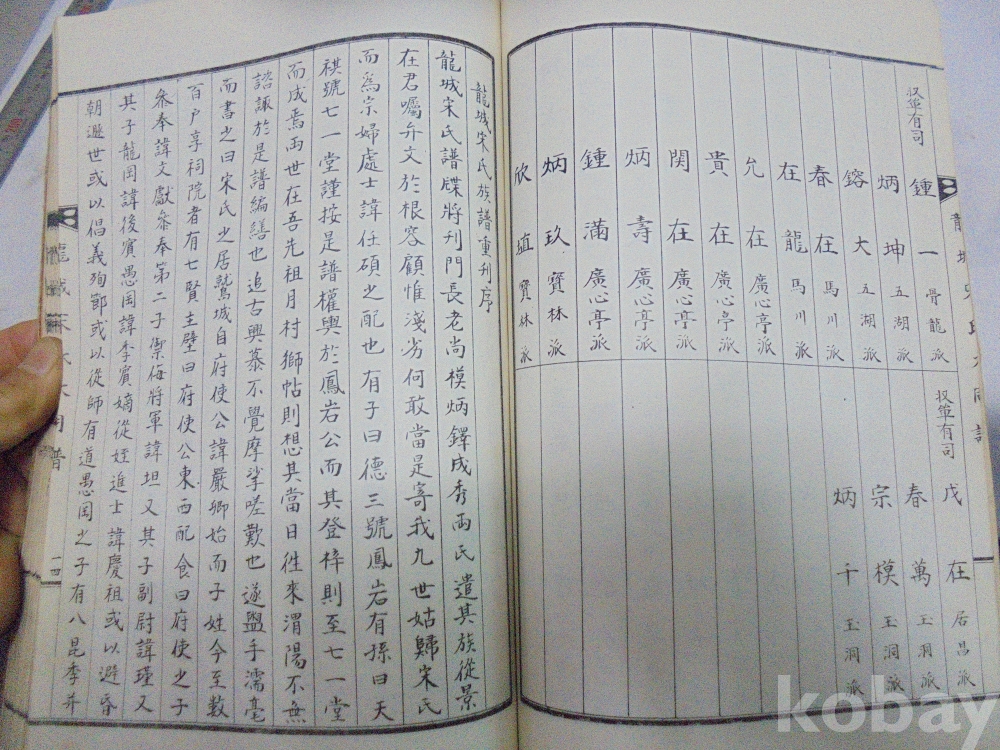 龍城宋氏大同譜
収單有司
鍾一 骨龍派
炳坤 五湖派
鎔大 五湖派
春在 馬川派
在龍 馬川派
允在 廣心亭派
貴在 廣心亭派
関在 廣心亭派
炳壽 廣心亭派
鍾滿 廣心亭派
炳玖 寶林派
欣埴 寶林派
収單有司
戊在 居昌派
春萬 玉洞派
宗模 玉洞派
炳千 玉洞派
龍城宋氏族譜重刊序
龍城宋氏譜牒將刋門長老尚模炳鐸成秀両氏遣其族從景
在君囑弁文於根容顧惟淺劣何敢當是寄我九世姑歸宋氏
而爲宗婦處士諱任碩之配也有子曰德三號鳳岩有孫曰天
祺號七一堂謹按是譜權輿於鳳岩公而其登梓則至七一堂
而成焉両世在吾先祖月村獅帖則想其當日徃來渭陽不無
諮諏於是譜編繕也追古興慕不覺摩挲嗟歎也遂盥手濡毫
而書之曰宋氏之居鷲城自府使公諱嚴卿始而子姓今至數
百户享祠院者有七賢主壁曰府使公東西配食曰府使之子
叅奉諱文獻叅奉第二子禦侮將軍諱坦又其子副尉諱瑾又
其子龍岡諱後賓愚岡諱李賓嫡從姪進士諱慶祖或以避昏
朝避世或以倡義殉節或以從師有道愚岡之子有八昆季并
龍城宋氏大同譜
一四
kobay